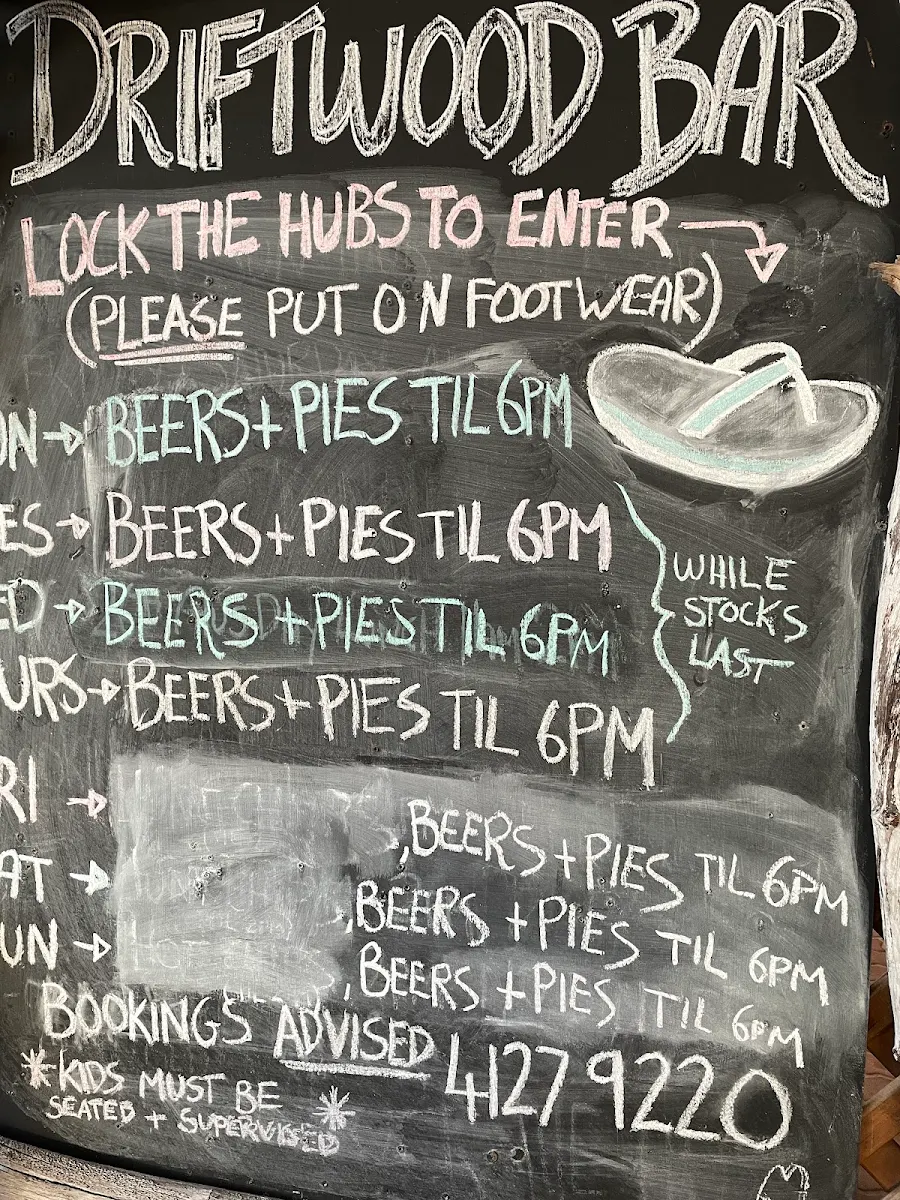 DRIFTWOOD BAR
LOCK THE HUBS TO ENTER
(PLEASE PUT ON FOOTWEAR)
ON → BEERS + PIES TIL 6PM
ES → BEERS + PIES TIL 6PM
ED → BEERS + PIES TIL 6PM
URS → BEERS + PIES TIL 6PM
WHILE
STOCKS
LAST
RI → , BEERS + PIES TIL 6PM
AT → , BEERS + PIES TIL 6PM
UN → , BEERS + PIES TIL 6PM
BOOKINGS ADVISED 4127 9220
*KIDS MUST BE
SEATED + SUPERVISED*